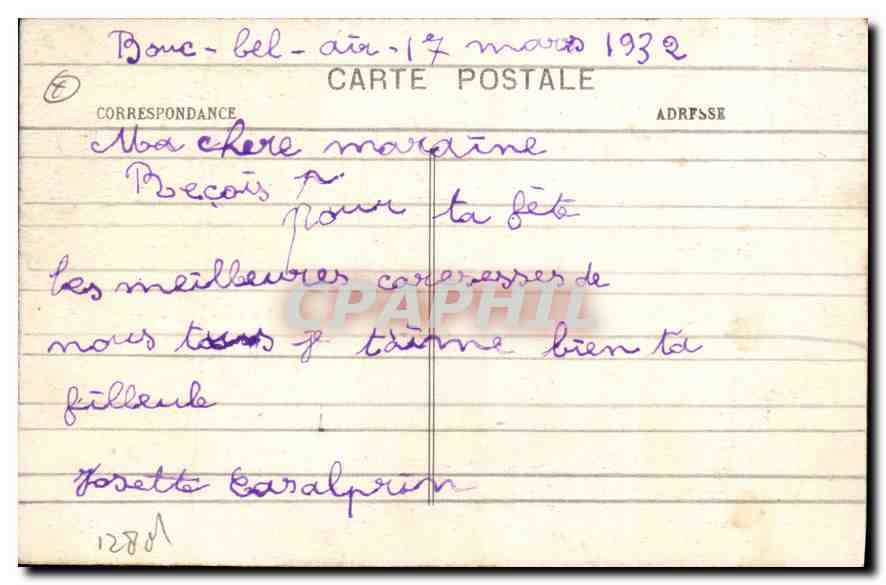 Bouc-bel-air-17 mars 1932
CARTE POSTALE
CORRESPONDANCE ADRESSE
Ma chere maraine
Reçois
pour ta fête
les meilleures caresesses de
nous tous je t'aime bien ta
filleule
Josette Casalprim
CPAPHIL